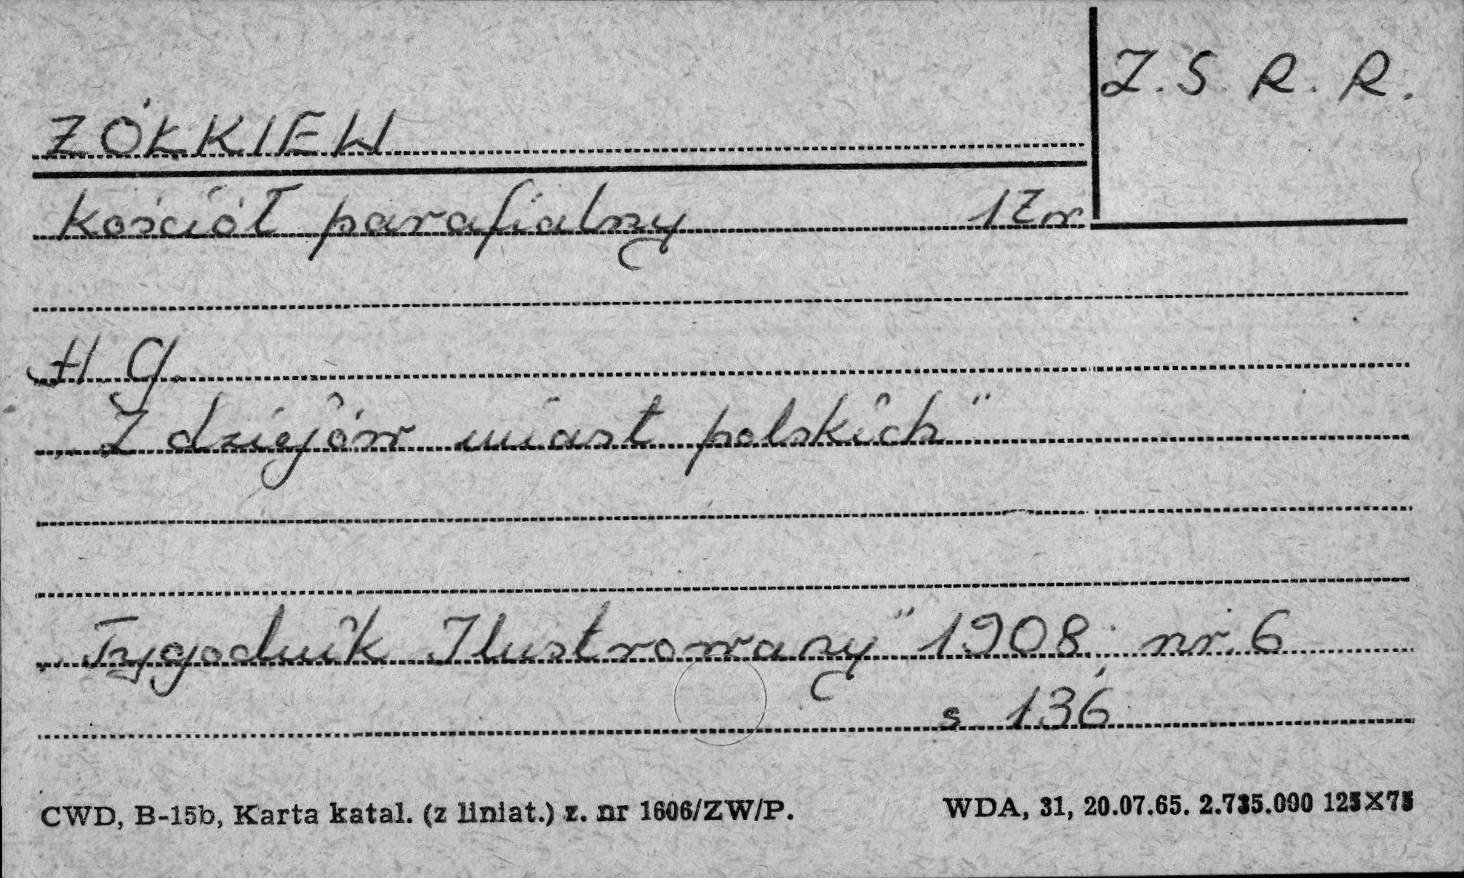 Z.S.R.R.
ŻÓŁKIEW
kościół parafialny
H G.
„Z dziejów miast polskich"
„Tygodnik Ilustrowany" 1908, nr. 6
s 136
CWD, B-15b, Karta katal. (z liniat.) z. nr 1606/ZW/P. WDA, 31, 20.07.65. 2.735.000 125X75